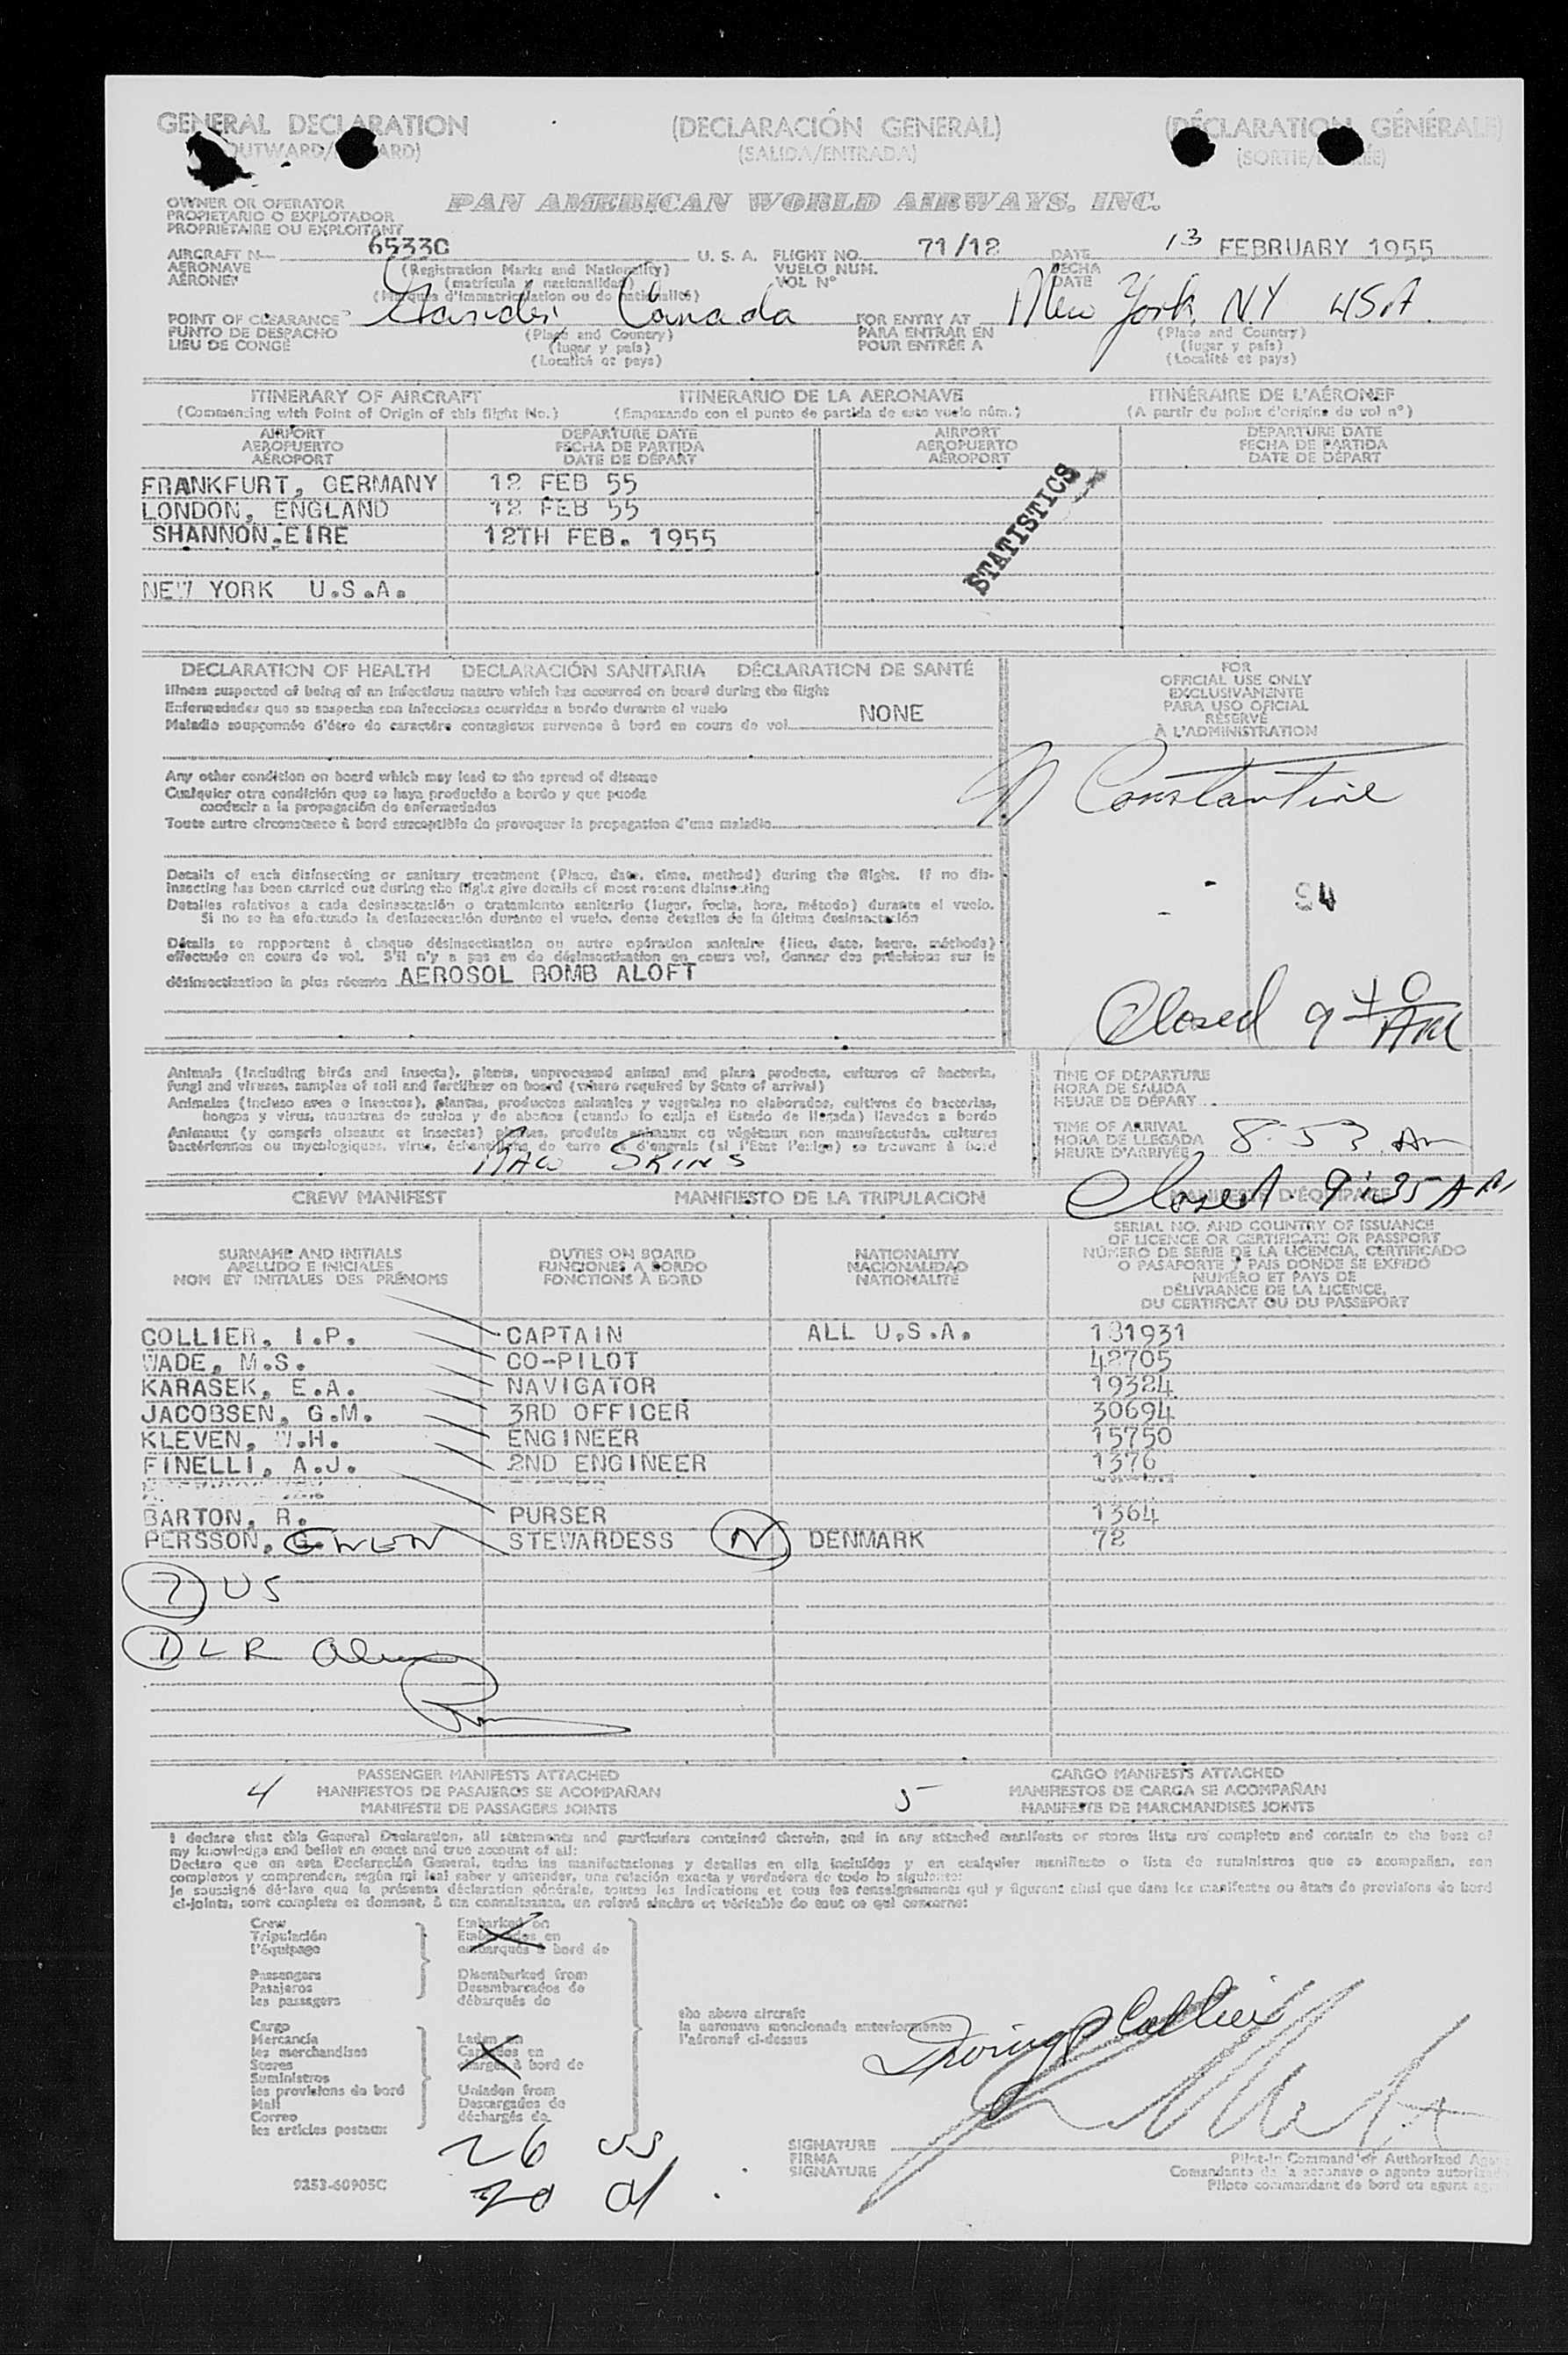 GENERAL DECLARATION (DECLARACIÓN GENERAL) (DÉCLARATION GÉNÉRALE)
(SALIDA/ENTRADA)
OWNER OR OPERATOR
PROPIETARIO O EXPLOTADOR
PROPRIÉTAIRE OU EXPLOITANT
PAN AMERICAN WORLD AIRWAYS, INC.
AIRCRAFT N— U. S. A. FLIGHT NO. 71/12 DATE 13 FEBRUARY 1955
AERONAVE (Registration Marks and Nationality) VUELO NUM. FECHA
AÉRONEF (matrícula y nacionalidad) VOL Nº DATE
(Marques d'immatriculation ou de nationalité)
POINT OF CLEARANCE Gander Canada FOR ENTRY AT New York, NY USA.
PUNTO DE DESPACHO (Place and Country) PARA ENTRAR EN (Place and Country)
LIEU DE CONGÉ (lugar y país) POUR ENTRÉE A (lugar y país)
(Localité et pays) (Localité et pays)
ITINERARY OF AIRCRAFT ITINERARIO DE LA AERONAVE ITINÉRAIRE DE L'AÉRONEF
(Commencing with Point of Origin of this flight No.) (Empezando con el punto de partida de este vuelo núm.) (A partir du point d'origine du vol nº)
AIRPORT DEPARTURE DATE AIRPORT DEPARTURE DATE
AEROPUERTO FECHA DE PARTIDA AEROPUERTO FECHA DE PARTIDA
AÉROPORT DATE DE DÉPART AÉROPORT DATE DE DÉPART
FRANKFURT, GERMANY 12 FEB 55
LONDON, ENGLAND 12 FEB 55
SHANNON.EIRE 12TH FEB. 1955
STATISTICS
NEW YORK U.S.A.
DECLARATION OF HEALTH DECLARACIÓN SANITARIA DÉCLARATION DE SANTÉ
Illness suspected of being of an infectious nature which has occurred on board during the flight
Enfermedades que se sospecha son infecciosas ocurridas a bordo durante el vuelo
Maladie soupçonnée d'être de caractère contagieux survenue à bord en cours de vol NONE
FOR
OFFICIAL USE ONLY
EXCLUSIVAMENTE
PARA USO OFICIAL
RÉSERVÉ
À L'ADMINISTRATION
Any other condition on board which may lead to the spread of disease
Cualquier otra condición que se haya producido a bordo y que puede
conducir a la propagación de enfermedades
Toute autre circonstance à bord susceptible de provoquer la propagation d'une maladie
Constantine
Details of each disinsecting or sanitary treatment (Place, date, time, method) during the flight. If no dis-
insecting has been carried out during the flight give details of most recent disinsecting
Detalles relativos a cada desinsectación o tratamiento sanitario (lugar, fecha, hora, método) durante el vuelo.
Si no se ha efectuado la desinsectación durante el vuelo, dense detalles de la última desinsectación
Détails se rapportant à chaque désinsectisation ou autre opération sanitaire (lieu, date, heure, méthode)
effectuée en cours de vol. S'il n'y a pas eu de désinsectisation en cours vol, donner des précisions sur la
désinsectisation la plus récente AEROSOL BOMB ALOFT
Closed 9 40 AM
Animals (including birds and insects), plants, unprocessed animal and plant products, cultures of bacteria,
fungi and viruses, samples of soil and fertilizer on board (where required by State of arrival)
Animales (incluso aves e insectos), plantas, productos animales y vegetales no elaborados, cultivos de bacterias,
hongos y virus, muestras de suelos y de abonos (cuando lo exija el Estado de llegada) llevados a bordo
Animaux (y compris oiseaux et insectes) plantes, produits animaux ou végétaux non manufacturés, cultures
bactériennes ou mycologiques, virus, échantillons de terre et d'engrais (si l'Etat l'exige) se trouvant à bord
RAW SKINS
TIME OF DEPARTURE
HORA DE SALIDA
HEURE DE DÉPART
TIME OF ARRIVAL
HORA DE LLEGADA 8:53 AM
HEURE D'ARRIVÉE
Closed. 9:35 AM
CREW MANIFEST MANIFIESTO DE LA TRIPULACION MANIFESTE D'ÉQUIPAGE
SURNAME AND INITIALS DUTIES ON BOARD NATIONALITY SERIAL NO. AND COUNTRY OF ISSUANCE
APELLIDO E INICIALES FUNCIONES A BORDO NACIONALIDAD OF LICENCE OR CERTIFICATE OR PASSPORT
NOM ET INITIALES DES PRÉNOMS FONCTIONS À BORD NATIONALITÉ NÚMERO DE SERIE DE LA LICENCIA, CERTIFICADO
O PASAPORTE Y PAIS DONDE SE EXPIDÓ
NUMÉRO ET PAYS DE
DÉLIVRANCE DE LA LICENCE,
DU CERTIFICAT OU DU PASSEPORT
COLLIER, I.P. CAPTAIN ALL U.S.A. 181931
WADE, M.S. CO-PILOT 42705
KARASEK, E.A. NAVIGATOR 19324
JACOBSEN, G.M. 3RD OFFICER 30694
KLEVEN, W.H. ENGINEER 15750
FINELLI, A.J. 2ND ENGINEER 1376
BARTON, R. PURSER 1364
PERSSON, GWEN STEWARDESS N DENMARK 72
7 US
1 LR
4 PASSENGER MANIFESTS ATTACHED 5 CARGO MANIFESTS ATTACHED
MANIFIESTOS DE PASAJEROS SE ACOMPAÑAN MANIFIESTOS DE CARGA SE ACOMPAÑAN
MANIFESTE DE PASSAGERS JOINTS MANIFESTE DE MARCHANDISES JOINTS
I declare that this General Declaration, all statements and particulars contained therein, and in any attached manifests or stores lists are complete and contain to the best of
my knowledge and belief an exact and true account of all:
Declaro que en esta Declaración General, todas las manifestaciones y detalles en ella incluídos y en cualquier manifiesto o lista de suministros que se acompañan, son
completos y comprenden, según mi leal saber y entender, una relación exacta y verdadera de todo lo siguiente:
Je soussigné déclare que la présente déclaration générale, toutes les indications et tous les renseignements qui y figurent ainsi que dans les manifestes ou états de provisions de bord
ci-joints, sont complets et donnent, à ma connaissance, un relevé sincère et véritable de tout ce qui concerne:
Crew Embarked on
Tripulación Embarcados en
l'équipage embarqués à bord de
Passengers Disembarked from
Pasajeros Desembarcados de
les passagers débarqués de
Cargo the above aircraft
Mercancía Laden on la aeronave mencionada anteriormente
les merchandises Cargados en l'aéronef ci-dessus
Stores chargés à bord de
Suministros
les provisions de bord Unladen from
Mail Descargados de
Correo déchargés de
les articles postaux
Irving P Collier
26 US
20
SIGNATURE
FIRMA Pilot-in Command or Authorized
SIGNATURE Comandante de la aeronave o agente
Pilote commandant de bord ou agent
9253-60905C